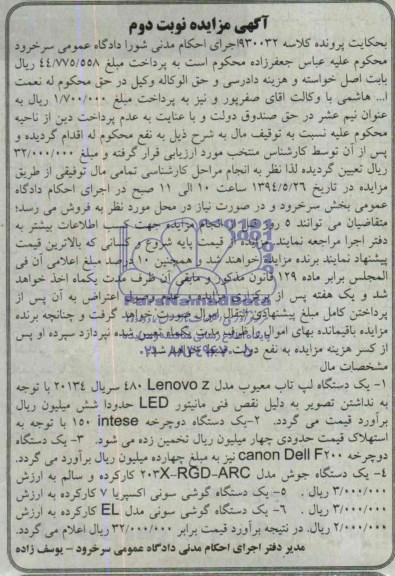 آگهی مزایده نوبت دوم
بحکایت پرونده کلاسه ۹۳۰۰۳۲اجرای احکام مدنی شورا دادگاه عمومی سرخرود
محکوم علیه عباس جعفرزاده محکوم است به پرداخت مبلغ ۴۴/۷۷۵/۵۵۸ ریال
بابت اصل خواسته و هزینه دادرسی و حق الوکاله وکیل در حق محکوم له نعمت
ا... هاشمی با وکالت اقای صفرپور و نیز به پرداخت مبلغ ۱/۷۰۰/۰۰۰ ریال به
عنوان نیم عشر در حق صندوق دولت و با عنایت به عدم پرداخت دین از ناحیه
محکوم علیه نسبت به توقیف مال به شرح ذیل به نفع محکوم له اقدام گردیده و
پس از آن توسط کارشناس منتخب مورد ارزیابی قرار گرفته و مبلغ ۳۲/۰۰۰/۰۰۰
ریال تعیین گردیده لذا نظر به انجام مراحل کارشناسی تمامی مال توقیفی از طریق
مزایده در تاریخ ۱۳۹۴/۵/۲۶ ساعت ۱۰ الی ۱۱ صبح در اجرای احکام دادگاه
عمومی بخش سرخرود و در صورت نیاز در محل مورد نظر به فروش می رسد؛
متقاضیان می توانند ۵ روز قبل از انجام مزایده جهت کسب اطلاعات بیشتر به
دفتر اجرا مراجعه نمایند مزایده از قیمت پایه شروع و کسانی که بالاترین قیمت
پیشنهاد نمایند برنده مزایده خواهند شد. همچنین ۱۰ درصد مبلغ اعلامی آن فی
المجلس برابر ماده ۱۲۹ قانون مذکور و مابقی آن ظرف مدت یکماه اخذ خواهد
شد و یک هفته پس از برگزاری مزایده و عدم وصول اعتراض به آن پس از
پرداختن کامل مبلغ پیشنهادی انتقال اموال صورت خواهد گرفت و چنانچه برنده
مزایده باقیمانده بهای اموال را ظرف مدت یکماه تعیین شده نپردازد سپرده او پس
از کسر هزینه مزایده به نفع دولت ضبط خواهد شد.
مشخصات مال
۱- یک دستگاه لپ تاب معیوب مدل Lenovo z ۴۸۰ سریال ۲۰۱۳۴ با توجه
به نداشتن تصویر به دلیل نقص فنی مانیتور LED حدودا شش میلیون ریال
برآورد قیمت می گردد. ۲-یک دستگاه دوچرخه intese ۱۵۰ با توجه به
استهلاک قیمت حدودی چهار میلیون ریال تخمین زده می شود. ۳- یک دستگاه
دوچرخه canon Dell F۲۰۰ نیز به مبلغ چهارده میلیون ریال برآورد می گردد.
۴- یک دستگاه جوش مدل ۲۰۳X-RGD-ARC کارکرده و سالم به ارزش
۳/۰۰۰/۰۰۰ ریال . ۵- یک دستگاه گوشی سونی اکسپریا ۷ کارکرده به ارزش
۳/۰۰۰/۰۰۰ ریال . ۶- یک دستگاه گوشی سونی مدل EL کارکرده به ارزش
۲/۰۰۰/۰۰۰ ریال. در نتیجه برآورد قیمت برابر ۳۲/۰۰۰/۰۰۰ ریال اعلام می گردد.
مدیر دفتر اجرای احکام مدنی دادگاه عمومی سرخرود - یوسف زاده